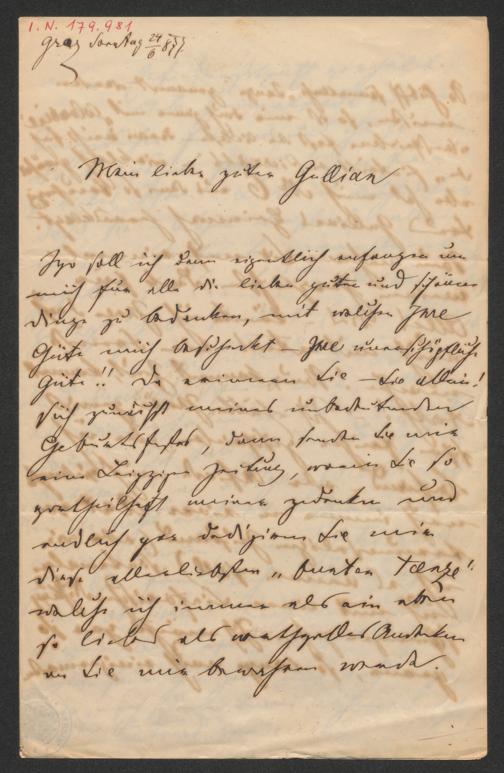 I. N. 179.981
Graz Sonntag 24/6 877.
Mein lieber guter Gullian
Wo soll ich denn eigentlich anfangen um
mich für alle die lieben guten und schönen
Dinge zu bedanken, mit welchen Ihre
Güte mich beschenkt – Ihre unerschöpfliche
Güte!! Da erinnern Sie – Sie allein!
sich zunächst meines unbedeutenden
Geburtsfestes, dann senden Sie mir
eine Leipziger Zeitung, worin Sie so
vortheilhaft meiner gedenken und
endlich gar dediziren Sie mir
diese allerliebsten „bunten Tänze"
welche ich immer als ein eben
so liebes als werthvolles Andenken
an Sie mir bewahren werde.